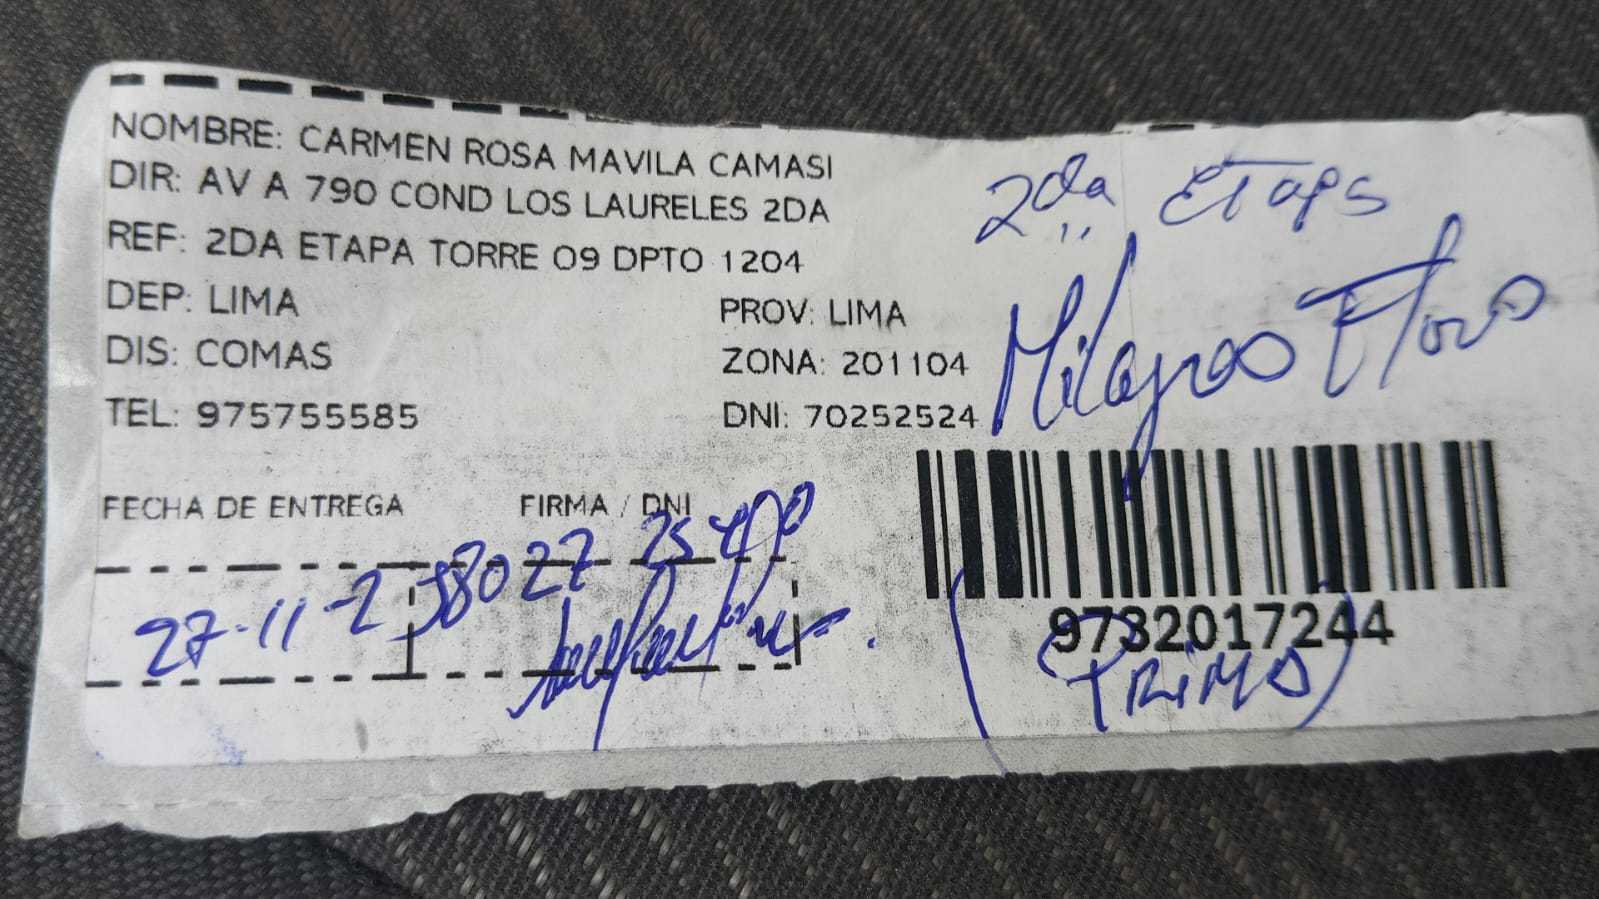 NOMBRE: CARMEN ROSA MAVILA CAMASI
DIR: AV A 790 COND LOS LAURELES 2DA
REF: 2DA ETAPA TORRE 09 DPTO 1204
DEP: LIMA PROV: LIMA
DIS: COMAS ZONA: 201104
TEL: 975755585 DNI: 70252524
2da Etapa
Milagros Flores
FECHA DE ENTREGA FIRMA / DNI
27-11-2
9732017244
(PRIMO)